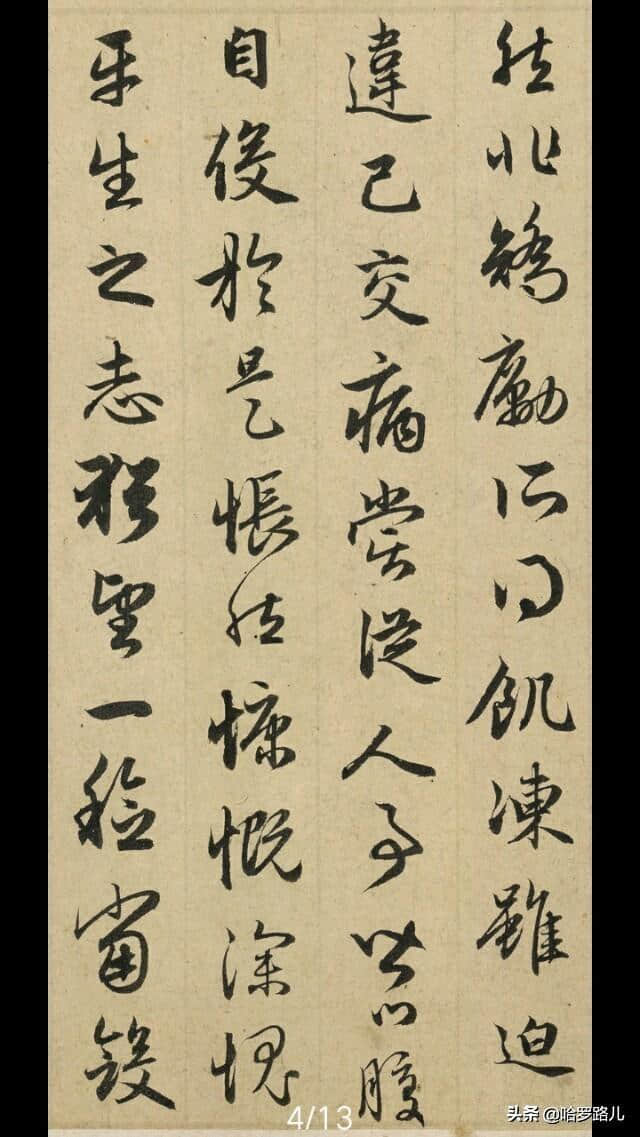 然非矯勵所得飢凍雖迫
違己交病嘗從人事皆口腹
自役於是悵然慷慨深愧
平生之志猶望一稔當斂
4/13
头条 @哈罗路儿